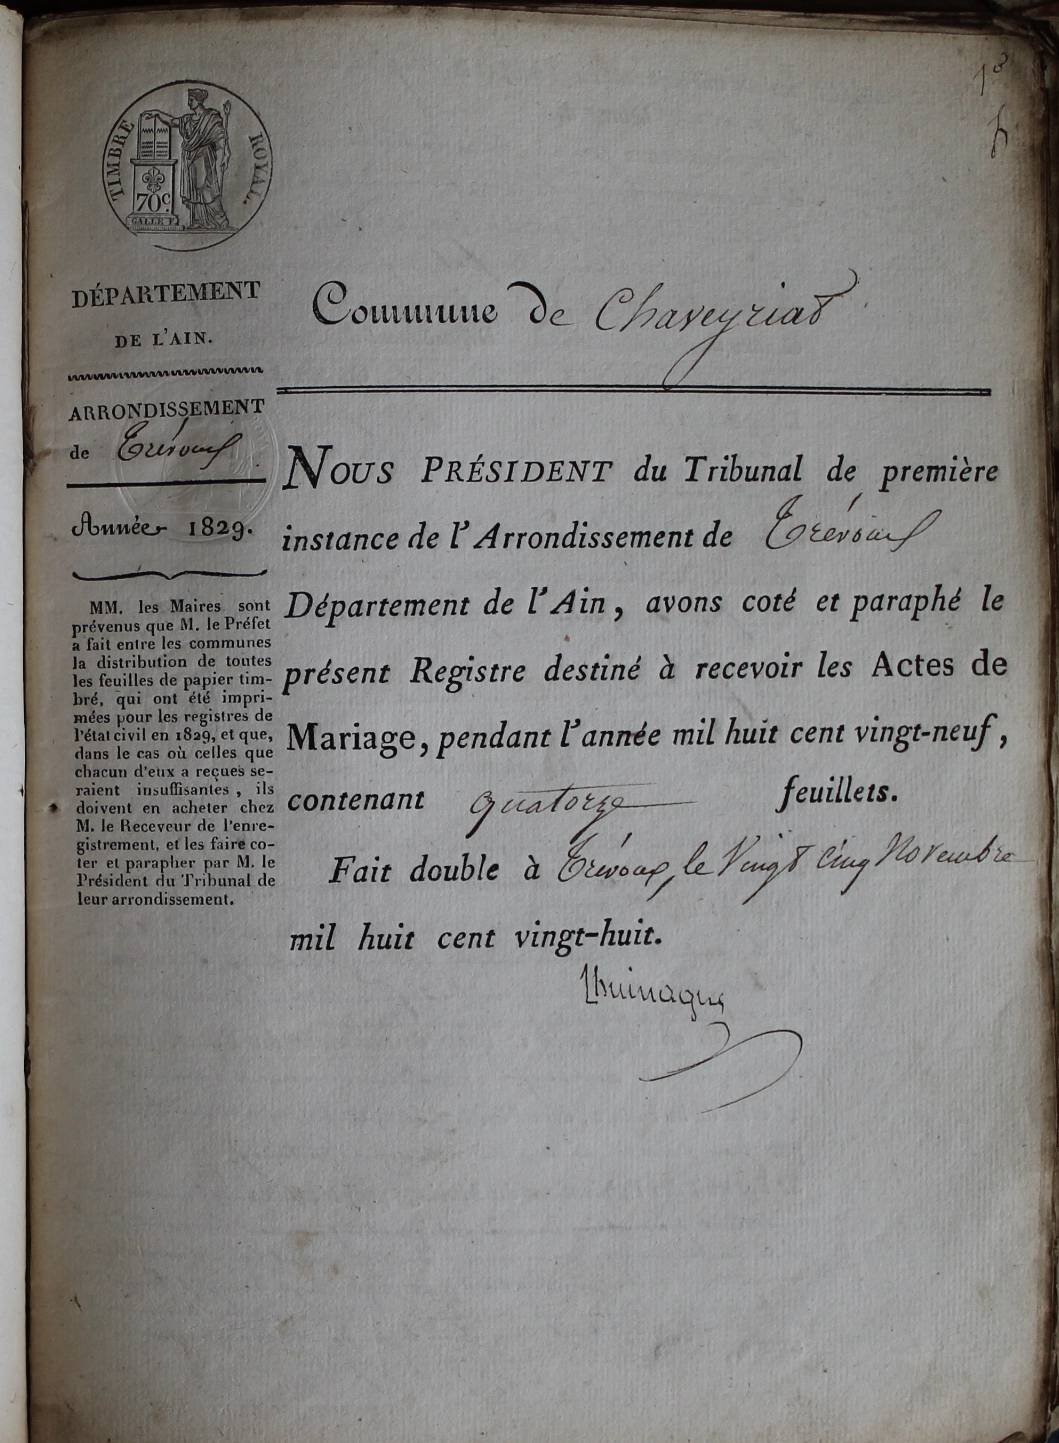 1er
TIMBRE ROYAL.
70c.
GALLE F.
DÉPARTEMENT
DE L'AIN.
ARRONDISSEMENT
de Trévoux
Année 1829.
MM. les Maires sont
prévenus que M. le Préfet
a fait entre les communes
la distribution de toutes
les feuilles de papier tim-
bré, qui ont été impri-
mées pour les registres de
l'état civil en 1829, et que,
dans le cas où celles que
chacun d'eux a reçues se-
raient insuffisantes, ils
doivent en acheter chez
M. le Receveur de l'enre-
gistrement, et les faire co-
ter et parapher par M. le
Président du Tribunal de
leur arrondissement.
Commune de Chaveyriat
NOUS PRÉSIDENT du Tribunal de première
instance de l'Arrondissement de Trévoux
Département de l'Ain, avons coté et paraphé le
présent Registre destiné à recevoir les Actes de
Mariage, pendant l'année mil huit cent vingt-neuf,
contenant quatorze feuillets.
Fait double à Trévoux, le Vingt cinq Novembre
mil huit cent vingt-huit.